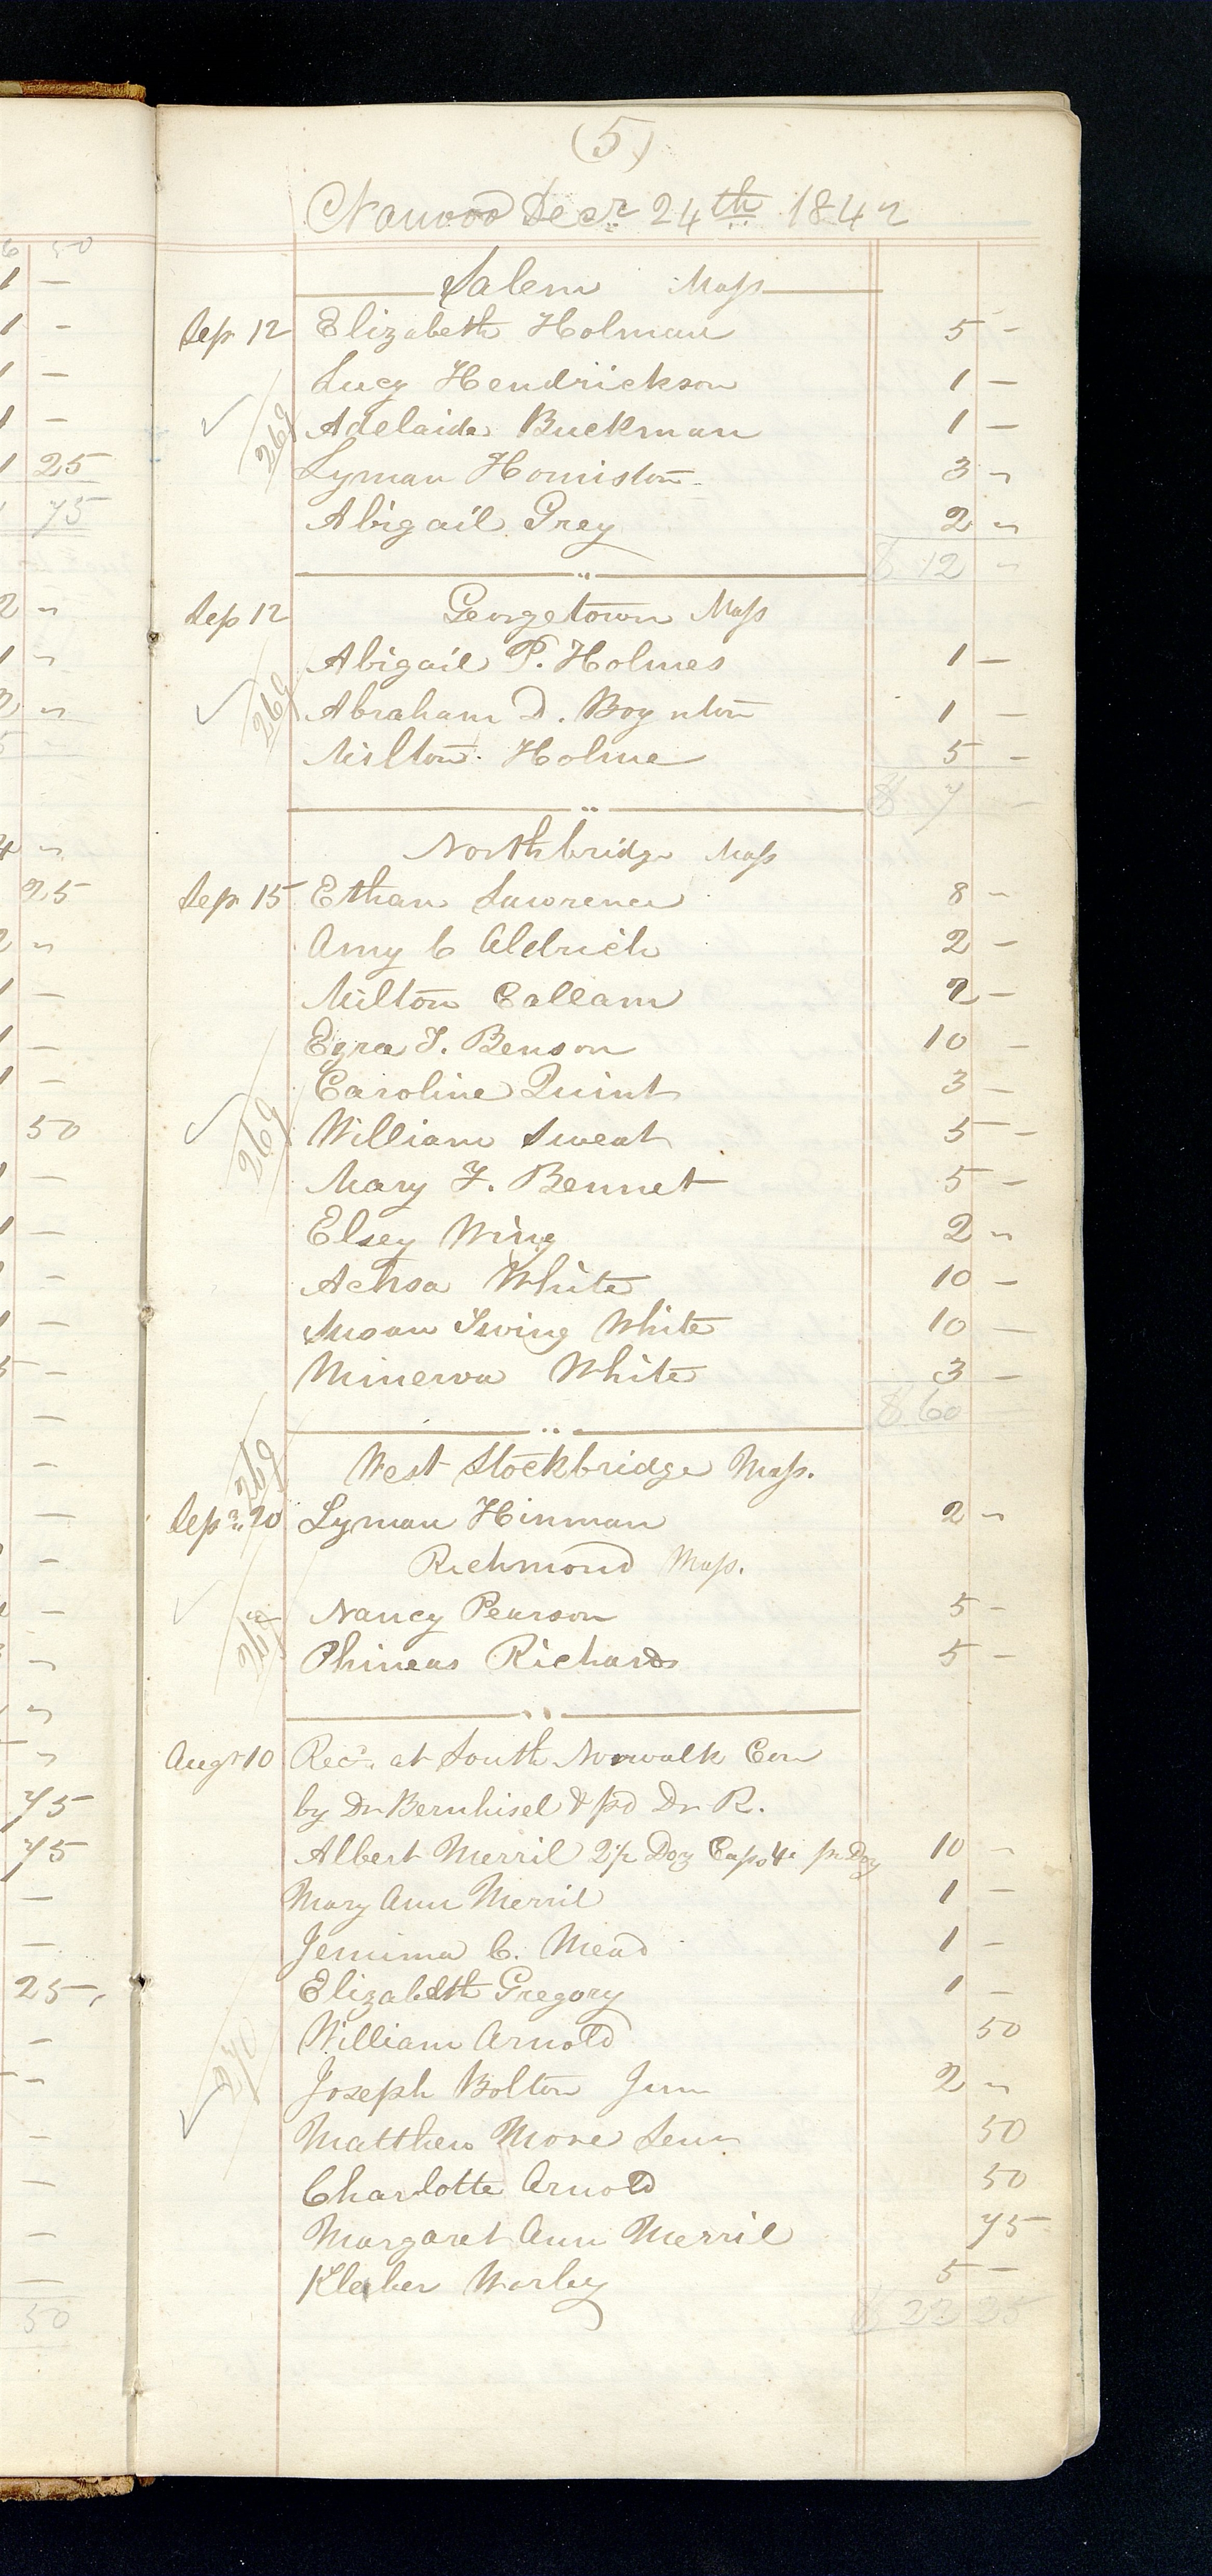 (5)
Nauvoo Decr. 24th 1842
Salem Mass
Sep 12 Elizabeth Holman 5 -
Lucy Hendrickson 1 -
269 Adelaide Buckman 1 -
Lyman Homiston 3 "
Abigail Grey 2 "
$ 12 "
Sep 12 Georgetown Mass
Abigail P. Holmes 1 -
269 Abraham D. Boynton 1 -
Milton Holme 5 -
$ 7 -
Northbridge Mass
Sep 15 Ethan Lawrence 8 -
Amy C Aldrich 2 -
Milton Callam 2 -
Ezra T. Benson 10 -
Caroline Quint 3 -
269 William Sweat 5 -
Mary F. Bennet 5 -
Elsey Wing 2 "
Achsa White 10 -
Susan Irving White 10 -
Minerva White 3 -
$ 60
269 West Stockbridge Mass.
Sepr. 20 Lyman Hinman 2 "
Richmond Mass.
Nancy Pearson 5 -
269 Phineas Richards 5 -
Augt 10 Recd. at South Norwalk Con
by Dr Bernhisel & pd Dr R.
Albert Merril 2½ Doz Caps 4. pr Doz 10 -
Mary Ann Merril 1 -
Jemima C. Mead 1 -
Elizabeth Gregory 1 -
William Arnold 50
270 Joseph Bolton Jun 2 "
Matthew More Senr 50
Charlotte Arnold 50
Margaret Ann Merril 75
Kleber Worley 5 -
$ 22 25